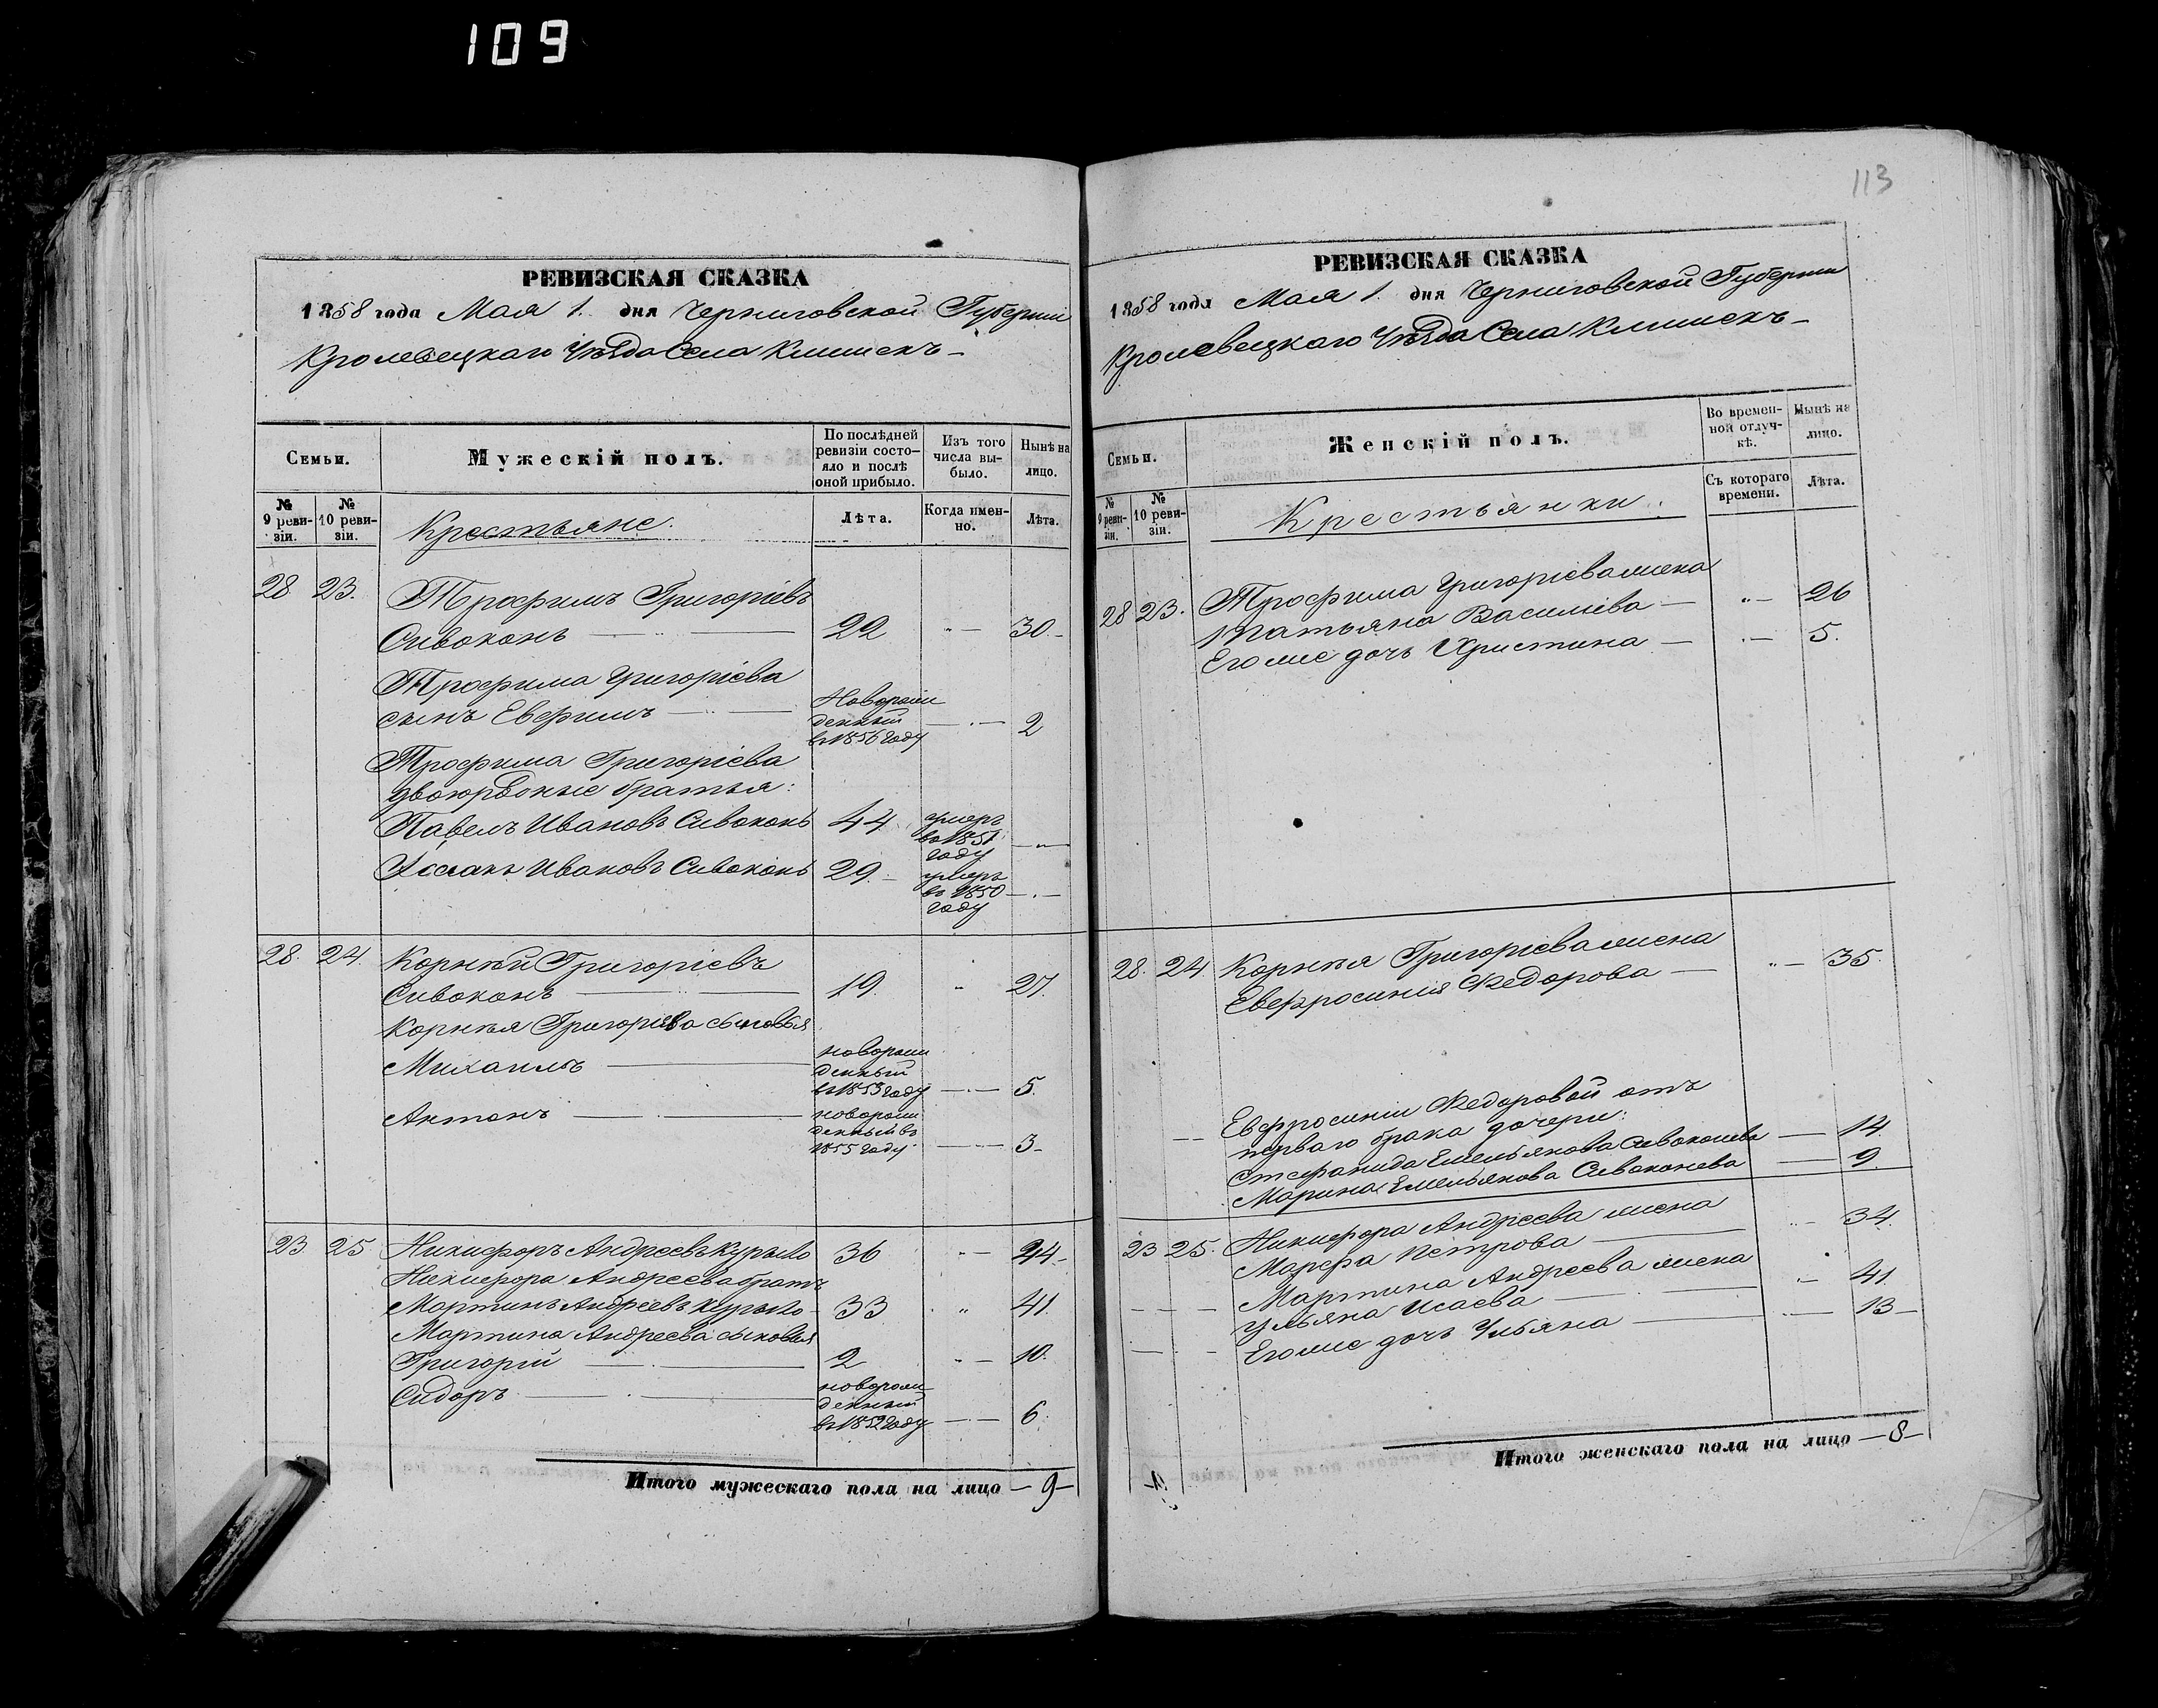 109
113
РЕВИЗСКАЯ СКАЗКА
1858 года Мая 1. дня Черниговской Губерніи
Кролевецкаго Уѣзда Села Клишекъ
Семьи.
Мужескій полъ.
По послѣдней ревизіи состояло и послѣ оной прибыло.
Изъ того числа выбыло.
Нынѣ на лицо.
№ 9 ревизіи.
№ 10 ревизіи.
Крестьяне.
Лѣта.
Когда именно.
Лѣта.
28 23. Трофимъ Григоріевъ
Сивоконь 22 30.
Трофима Григоріева
сынъ Евфимъ Новорожденный въ 1856 году 2
Трофима Григоріева
двоюродные братья:
Павелъ Ивановъ Сивоконь 44 умеръ въ 1851 году
Ивановъ Сивоконь 29. умеръ въ 1850 году
28. 24. Корнѣй Григоріевъ
Сивоконь 19. 27.
Корнѣя Григоріева сыновья
Михаилъ новорожденный въ 1853 году 5.
Антонъ новорожденный въ 1855 году 3
23 25 Никифоръ Андреевъ Курыло 36 44
Никифора Андреева братъ
Мартинъ Андреевъ Курыло 33 41.
Мартина Андреева сыновья
Григорій 2 10.
Сидоръ новорожденный въ 1852 году 6.
Итого мужескаго пола на лицо — 9 —
РЕВИЗСКАЯ СКАЗКА
1858 года Мая 1. дня Черниговской Губерніи
Кролевецкаго Уѣзда Села Клишекъ
Семьи.
Женскій полъ.
Во временной отлучкѣ.
Нынѣ на лицо.
№ 9 ревизіи.
№ 10 ревизіи.
Крестьянки.
Съ котораго времени.
Лѣта.
28 23. Трофима Григоріева жена
Татьяна Василіева 26
Его же дочь Христина 5.
28. 24. Корнѣя Григоріева жена
Евфросинія Федорова 35.
Евфросиніи Федоровой отъ
перваго брака дочери:
Стефанида Емельянова Сивоконева 14.
Марина Емельянова Сивоконева 9.
23 25. Никифора Андреева жена
Марфа Петрова 34.
Мартина Андреева жена
Ульяна Исаева 41.
Его же дочь Ульяна 13
Итого женскаго пола на лицо — 8 —